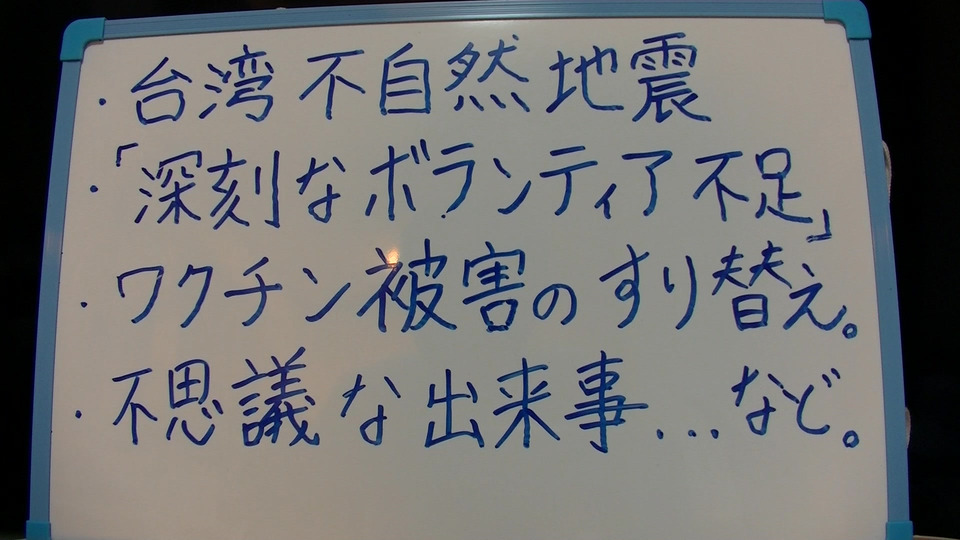 ・台湾 不自然 地震
・「深刻なボランティア不足」
・ワクチン被害のすり替え。
・不思議な出来事...など。